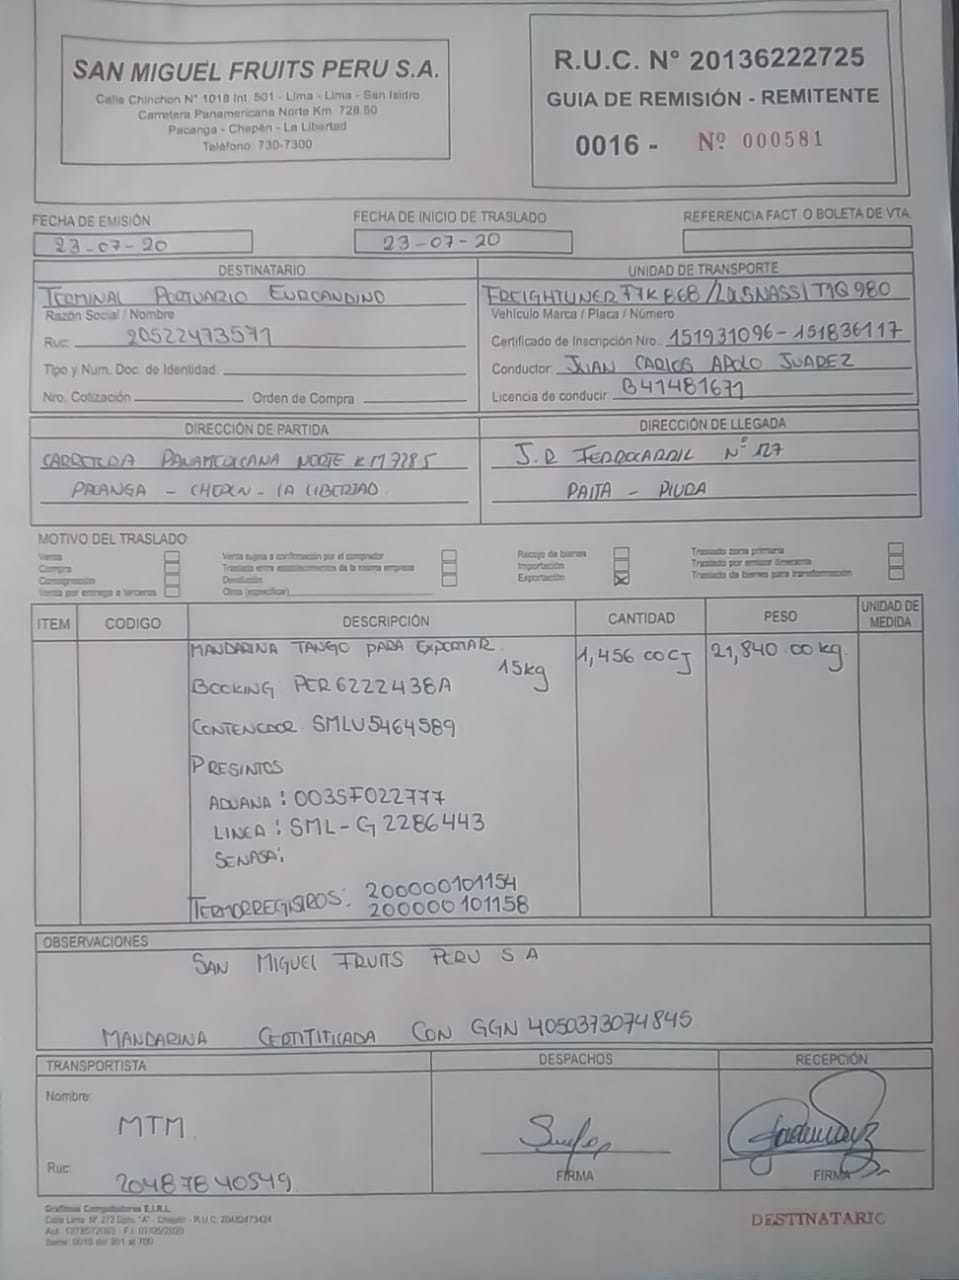 SAN MIGUEL FRUITS PERU S.A.
Calle Chinchon N° 1018 Int. 501 - Lima - Lima - San Isidro
Carretera Panamericana Norte Km. 728.50
Pacanga - Chepén - La Libertad
Teléfono: 730-7300
R.U.C. N° 20136222725
GUIA DE REMISIÓN - REMITENTE
0016 - Nº 000581
FECHA DE EMISIÓN
23-07-20
FECHA DE INICIO DE TRASLADO
23-07-20
REFERENCIA FACT. O BOLETA DE VTA.
DESTINATARIO
TERMINAL PORTUARIO EUROANDINO
Razón Social / Nombre
Ruc: 20522473571
Tipo y Num. Doc. de Identidad:
Nro. Cotización Orden de Compra
UNIDAD DE TRANSPORTE
FREIGHTLINER T7K868/ T1Q980
Vehículo Marca / Placa / Número
Certificado de Inscripción Nro.: 151931096-151836117
Conductor: JUAN CARLOS APOLO JUAREZ
Licencia de conducir: B41481671
DIRECCIÓN DE PARTIDA
CARRETERA PANAMERICANA NORTE KM 728.5
PACANGA - CHEPEN - LA LIBERTAD.
DIRECCIÓN DE LLEGADA
J.R FERROCARRIL N° 127
PAITA - PIURA
MOTIVO DEL TRASLADO:
Venta
Compra
Consignación
Venta por entrega a terceros
Venta sujeta a confirmación por el comprador
Traslado entre establecimientos de la misma empresa
Devolución
Otros (especificar)
Recojo de bienes
Importación
Exportación X
Traslado zona primaria
Traslado por emisor itinerante
Traslado de bienes para transformación
ITEM CODIGO DESCRIPCIÓN CANTIDAD PESO UNIDAD DE MEDIDA
MANDARINA TANGO PARA EXPORTAR. 1,456.00CJ 21,840.00kg.
15kg
BOOKING PER6222438A
CONTENEDOR SMLU5464589
PRESINTOS
ADUANA: 0035F022777
LINEA: SML-G2286443
SENASA:
TERMORREGISTROS: 200000101154
200000101158
OBSERVACIONES
SAN MIGUEL FRUITS PERU S A
MANDARINA CERTITICADA CON GGN 4050373074845
TRANSPORTISTA
Nombre:
MTM.
Ruc:
20487840549
DESPACHOS
FIRMA
RECEPCIÓN
FIRMA
Graficas Computadoras E.I.R.L.
Calle Lima N° 272 Dpto. "A" - Chepén - R.U.C. 20482473424
F.I. 07/05/2020
Serie 0016 del 301 al 700
DESTINATARIO